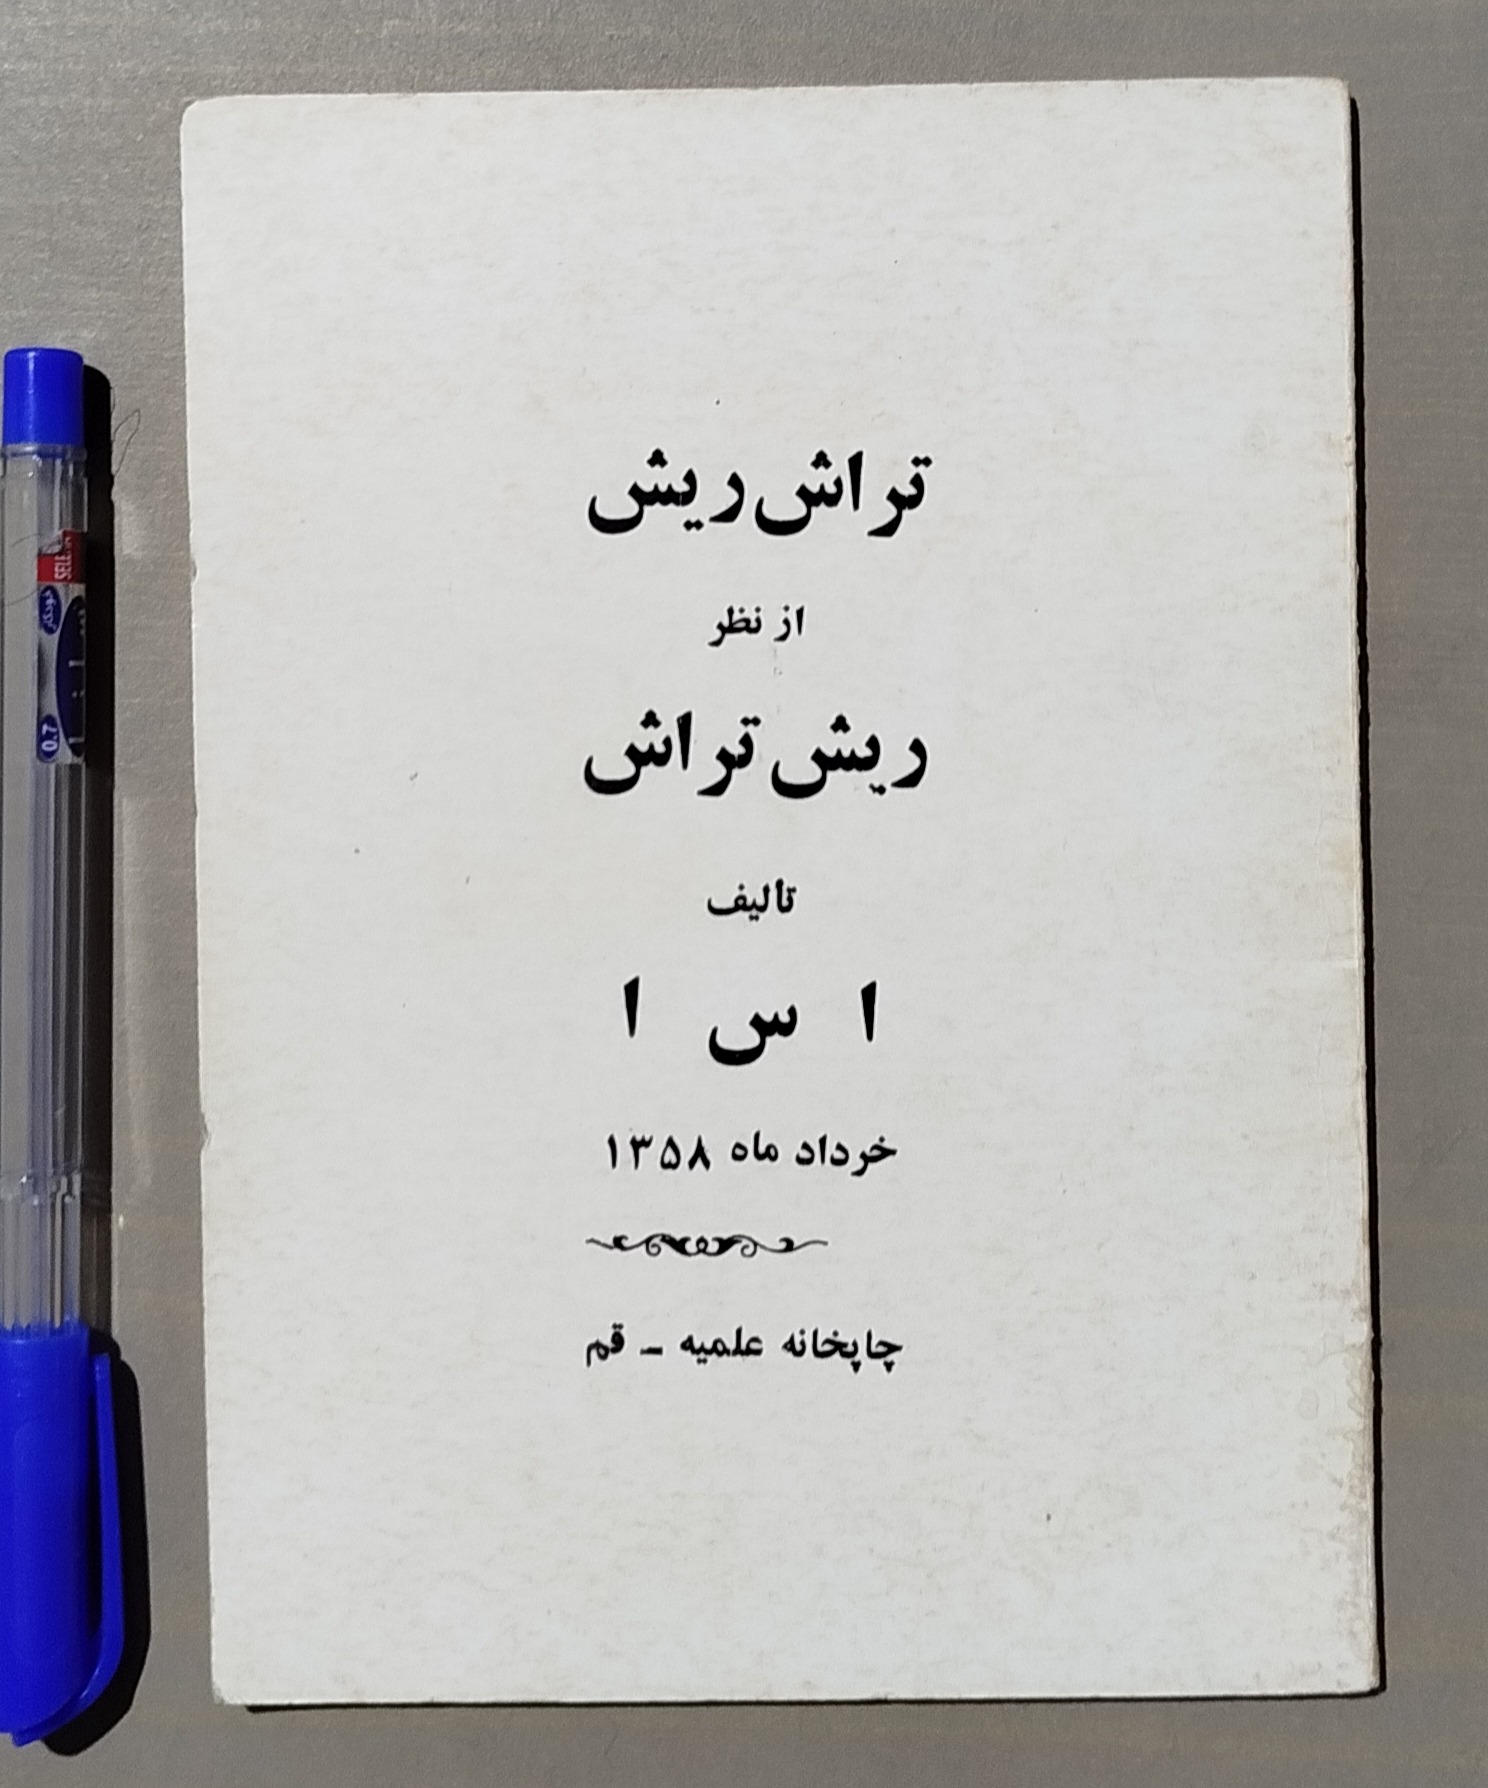 تراش ریش
از نظر
ریش تراش
تألیف
ا س ا
خرداد ماه ۱۳۵۸
چاپخانه علمیه - قم
خودکار
0.7